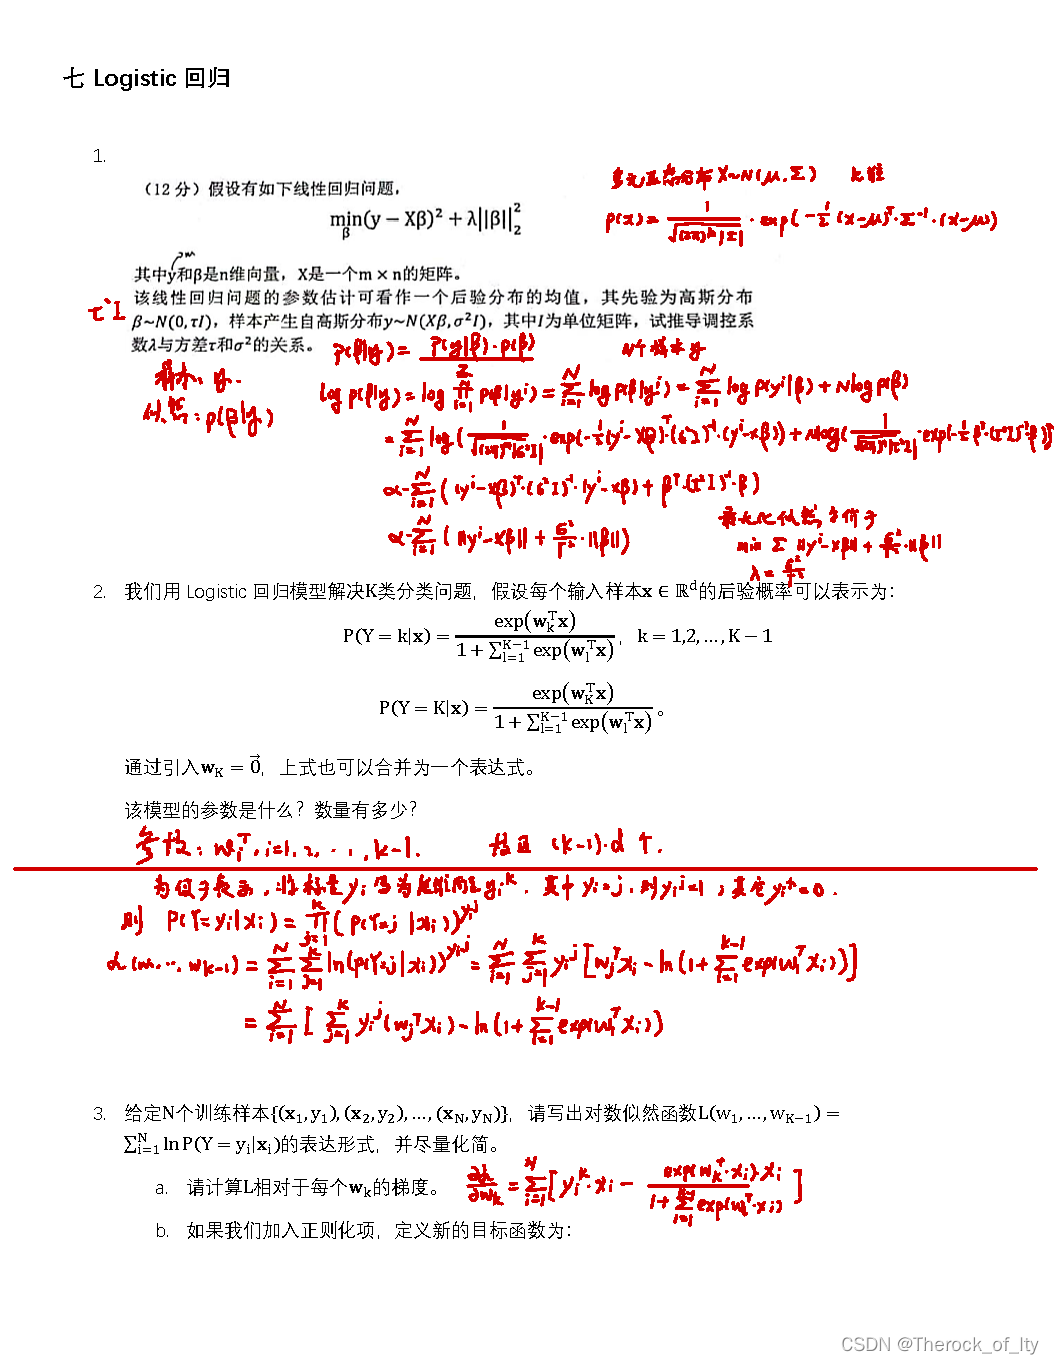 七 Logistic 回归
1.
（12 分）假设有如下线性回归问题，
多元正态分布 X~N(μ, Σ) k维
min_β (y − Xβ)² + λ||β||₂²
p(x) = 1/√((2π)^k |Σ|) · exp(-1/2 (x-μ)^T · Σ^-1 · (x-μ))
m
其中y和β是n维向量，X是一个m × n的矩阵。
该线性回归问题的参数估计可看作一个后验分布的均值，其先验为高斯分布
τ²I
β~N(0, τI)，样本产生自高斯分布y~N(Xβ, σ²I)，其中I为单位矩阵，试推导调控系
数λ与方差τ和σ²的关系。
p(β|y) = p(y|β)·p(β) / Z N个样本 y
样本: y.
似然: p(β|y)
log p(β|y) = log ∏_{i=1}^N p(β|y^i) = Σ_{i=1}^N log p(β|y^i) = Σ_{i=1}^N log p(y^i|β) + N log p(β)
= Σ_{i=1}^N log( 1/√((2π)^n|σ²I|) · exp(-1/2 (y^i-Xβ)^T·(σ²I)^-1·(y^i-Xβ)) + N log( 1/√((2π)^n|τ²I|) · exp(-1/2 β^T·(τ²I)^-1·β))
α -Σ_{i=1}^N ( (y^i-Xβ)^T·(σ²I)^-1·(y^i-Xβ) + β^T·(τ²I)^-1·β )
α -Σ_{i=1}^N ( ||y^i-Xβ|| + σ²/τ² · ||β|| )
最大化似然, 等价于
min Σ ||y^i-Xβ|| + σ²/τ² · ||β||
λ = σ²/τ²
2. 我们用 Logistic 回归模型解决K类分类问题，假设每个输入样本x ∈ ℝ^d的后验概率可以表示为：
P(Y = k|x) = exp(w_k^T x) / (1 + Σ_{l=1}^{K−1} exp(w_l^T x))， k = 1,2, … , K − 1
P(Y = K|x) = exp(w_K^T x) / (1 + Σ_{l=1}^{K−1} exp(w_l^T x))。
通过引入w_K = 0⃗，上式也可以合并为一个表达式。
该模型的参数是什么？数量有多少？
参数: w_i^T, i=1, 2, ··, k-1. 数目 (k-1)·d 个.
为便于表示, 将标量 y_i 写为 k维向量 y_i^k, 其中 y_i=j, 则 y_i^j=1, 其它 y_i^k=0.
则 P(Y=y_i|x_i) = ∏_{j=1}^k (P(Y=j|x_i))^{y_i^j}
L(w_1, ··, w_{k-1}) = Σ_{i=1}^N Σ_{j=1}^k ln(P(Y=j|x_i))^{y_i^j} = Σ_{i=1}^N Σ_{j=1}^k y_i^j [w_j^T x_i - ln(1+Σ_{l=1}^{k-1} exp(w_l^T x_i))]
= Σ_{i=1}^N [ Σ_{j=1}^k y_i^j (w_j^T x_i) - ln(1+Σ_{l=1}^{k-1} exp(w_l^T x_i))
3. 给定N个训练样本{(x₁, y₁), (x₂, y₂), … , (x_N, y_N)}，请写出对数似然函数L(w₁, … , w_{K−1}) =
Σ_{i=1}^N ln P(Y = y_i|x_i)的表达形式，并尽量化简。
a. 请计算L相对于每个w_k的梯度。 ∂L/∂w_k = Σ_{i=1}^N [y_i^k·x_i - exp(w_k^T·x_i)·x_i / (1+Σ_{l=1}^{k-1} exp(w_l^T·x_i))]
b. 如果我们加入正则化项，定义新的目标函数为：
CSDN @Therock_of_lty